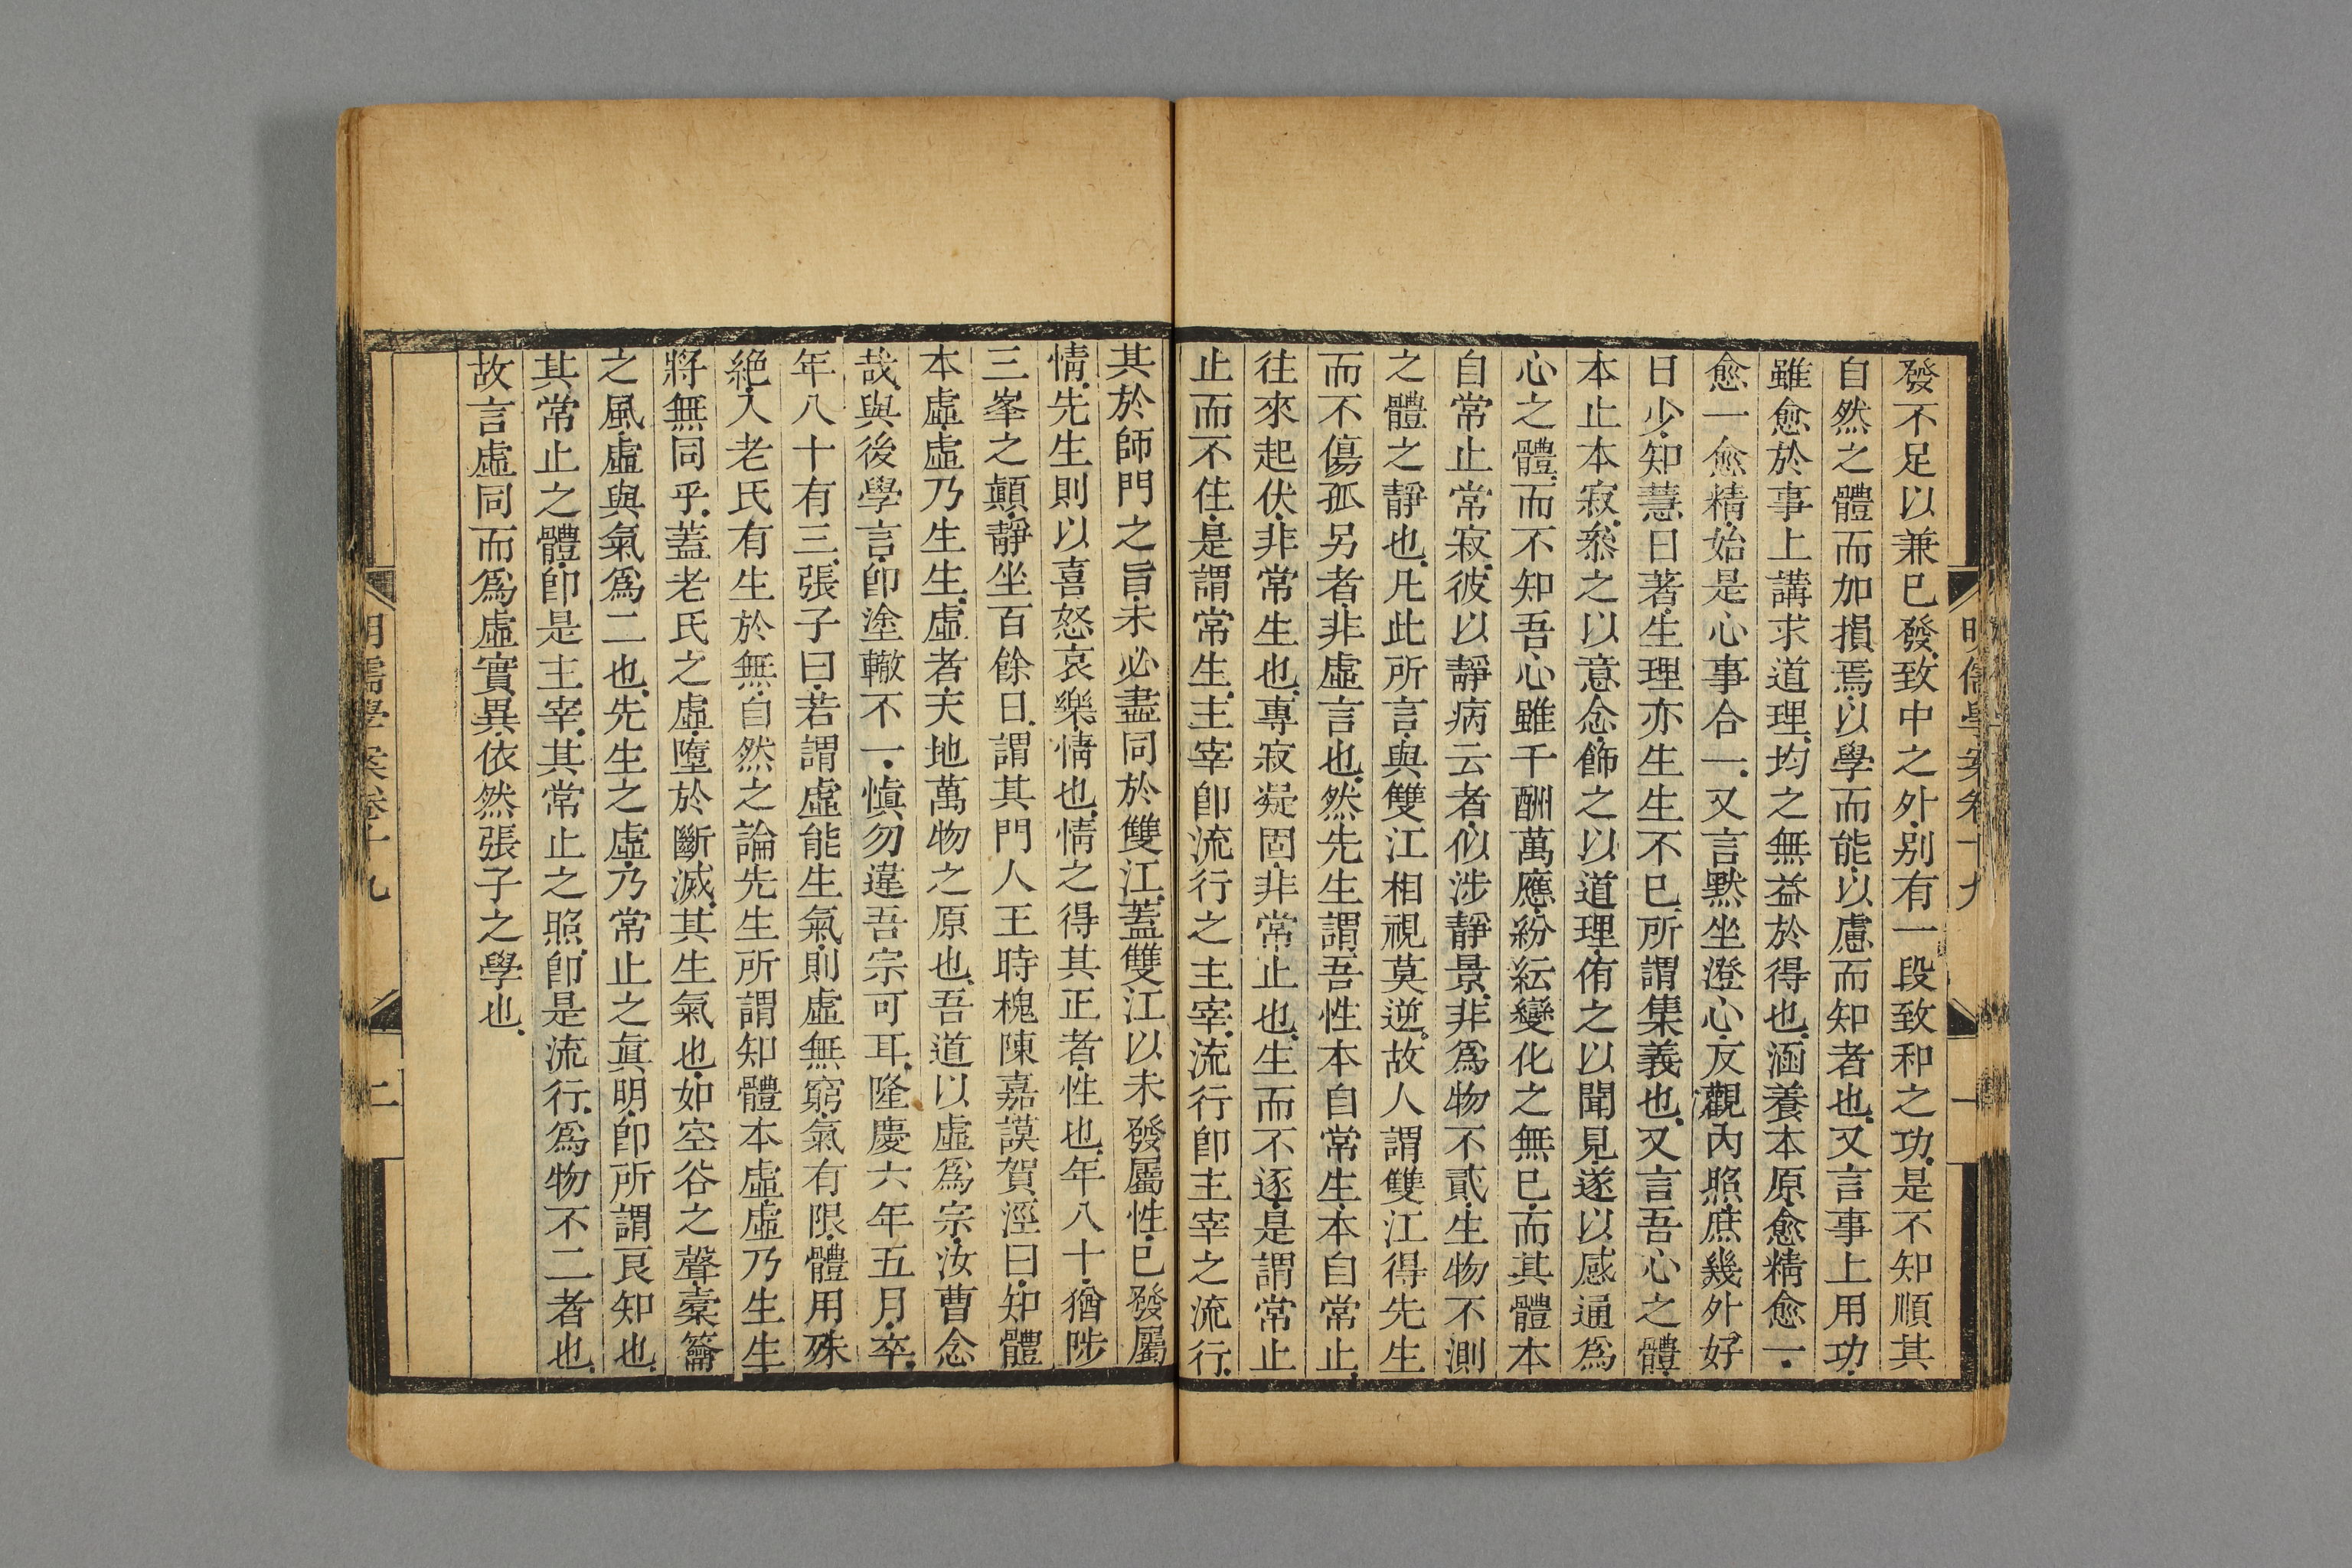 明儒學案卷十九
一
發不足以兼已發致中之外別有一段致和之功是不知順其
自然之體而加損焉以學而能以慮而知者也又言事上用功
雖愈於事上講求道理均之無益於得也涵養本原愈精愈一
愈一愈精始是心事合一又言默坐澄心反觀內照庶幾外好
日少知慧日著生理亦生生不已所謂集義也又言吾心之體
本止本寂叅之以意念飾之以道理侑之以聞見遂以感通爲
心之體而不知吾心雖千酬萬應紛紜變化之無已而其體本
自常止常寂彼以靜病云者似涉靜景非爲物不貳生物不測
之體之靜也凡此所言與雙江相視莫逆故人謂雙江得先生
而不傷孤另者非虛言也然先生謂吾性本自常生本自常止
往來起伏非常生也專寂凝固非常止也生而不逐是謂常止
止而不住是謂常生主宰卽流行之主宰流行卽主宰之流行
其於師門之旨未必盡同於雙江蓋雙江以未發屬性已發屬
情先生則以喜怒哀樂情也情之得其正者性也年八十猶陟
三峯之顛靜坐百餘日謂其門人王時槐陳嘉謨賀涇曰知體
本虛虛乃生生虛者天地萬物之原也吾道以虛爲宗汝曹念
哉與後學言卽塗轍不一愼勿違吾宗可耳隆慶六年五月卒
年八十有三張子曰若謂虛能生氣則虛無窮氣有限體用殊
絶入老氏有生於無自然之論先生所謂知體本虛虛乃生生
將無同乎蓋老氏之虛墮於斷滅其生氣也如空谷之聲橐籥
之風虛與氣爲二也先生之虛乃常止之眞明卽所謂良知也
其常止之體卽是主宰其常止之照卽是流行爲物不二者也
故言虛同而爲虛實異依然張子之學也
明儒學案卷十九
二